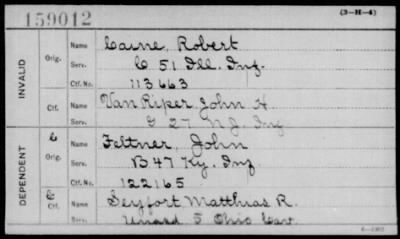 159012
(3-H-4)
INVALID
Orig.
Name Caine, Robert
Serv. C 51 Ill. Inf.
Ctf. No. 113663
Ctf.
Name Van Riper, John H.
Serv. G 27 N.J. Inf
DEPENDENT
C
Orig.
Name Feltner, John
Serv. B 47 Ky. Inf.
Ctf. No. 122165
C
Ctf.
Name Seyfort Matthias R.
Serv. 5 Ohio Cav.